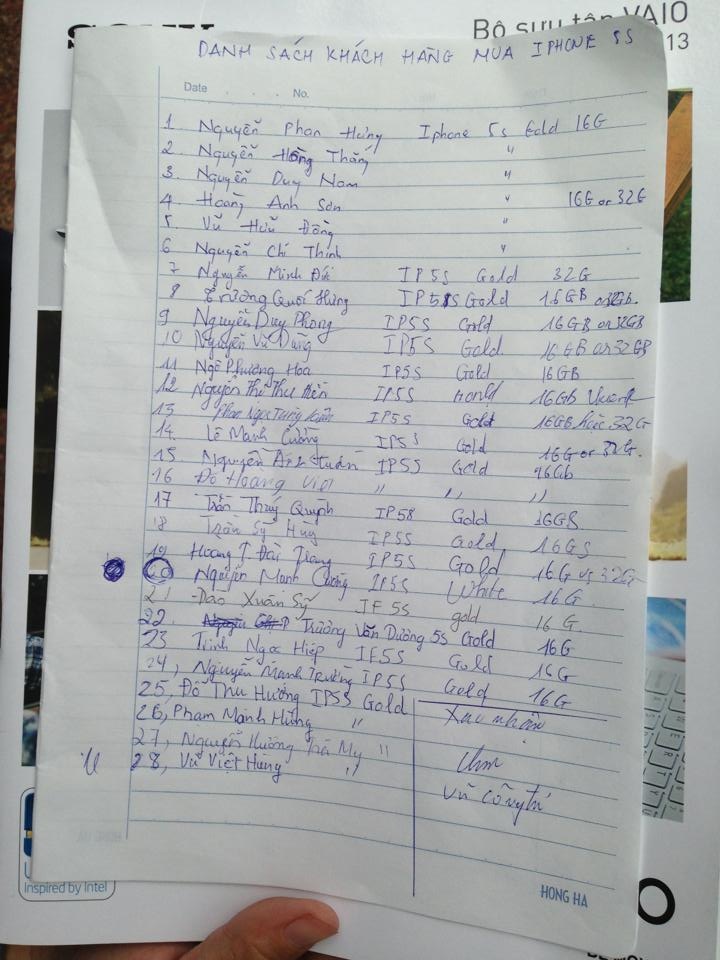 Bộ sưu tập VAIO
13
DANH SÁCH KHÁCH HÀNG MUA IPHONE 5S
Date . . . No.
1 Nguyễn Phan Hưng Iphone 5s Gold 16G
2. Nguyễn Hồng Thắng "
3. Nguyễn Duy Nam "
4 Hoàng Anh Sơn " 16G or 32G
5. Vũ Hữu Đồng "
6 Nguyễn Chí Thịnh "
7 Nguyễn Minh Đức IP5S Gold 32G
8 Trương Quốc Hưng IP5S Gold 16GB or 32Gb.
9 Nguyễn Duy Phong IP5S Gold 16GB or 32GB
10 Nguyễn Vũ Dũng IP5S Gold. 16GB or 32GB
11 Ngô Phương Hoa IP5S Gold 16GB
12 Nguyễn Thị Thu IP5S 16GB
13 Phan Ngọc IP5S Gold 16GB hoặc 32G
14. Lê Mạnh Cường IP5S Gold 16G or 32G.
15. Nguyễn Anh IP5S Gold 16Gb
16 Đỗ Hoàng Việt " " "
17 Trần Thúy Quỳnh IP5S Gold 16GB
18 Trần Sỹ Hùng IP5S Gold 16G
19 Hoàng T Đài Trang IP5S Gold 16G vs 32G
20 Nguyễn Mạnh Cường IP5S White 16G.
21 Đào Xuân Sỹ IP5S gold 16G.
22. Trương Văn Dương 5s Gold 16G
23 Trịnh Ngọc Hiệp IP5S Gold 16G
24, Nguyễn Mạnh Trường IP5S Gold 16G
25, Đỗ Thu Hương IP5S Gold
26, Phạm Mạnh Hùng "
27, Nguyễn Hương Trà My "
28, Vũ Việt Hưng "
Xác nhận
HONG HA
inspired by Intel